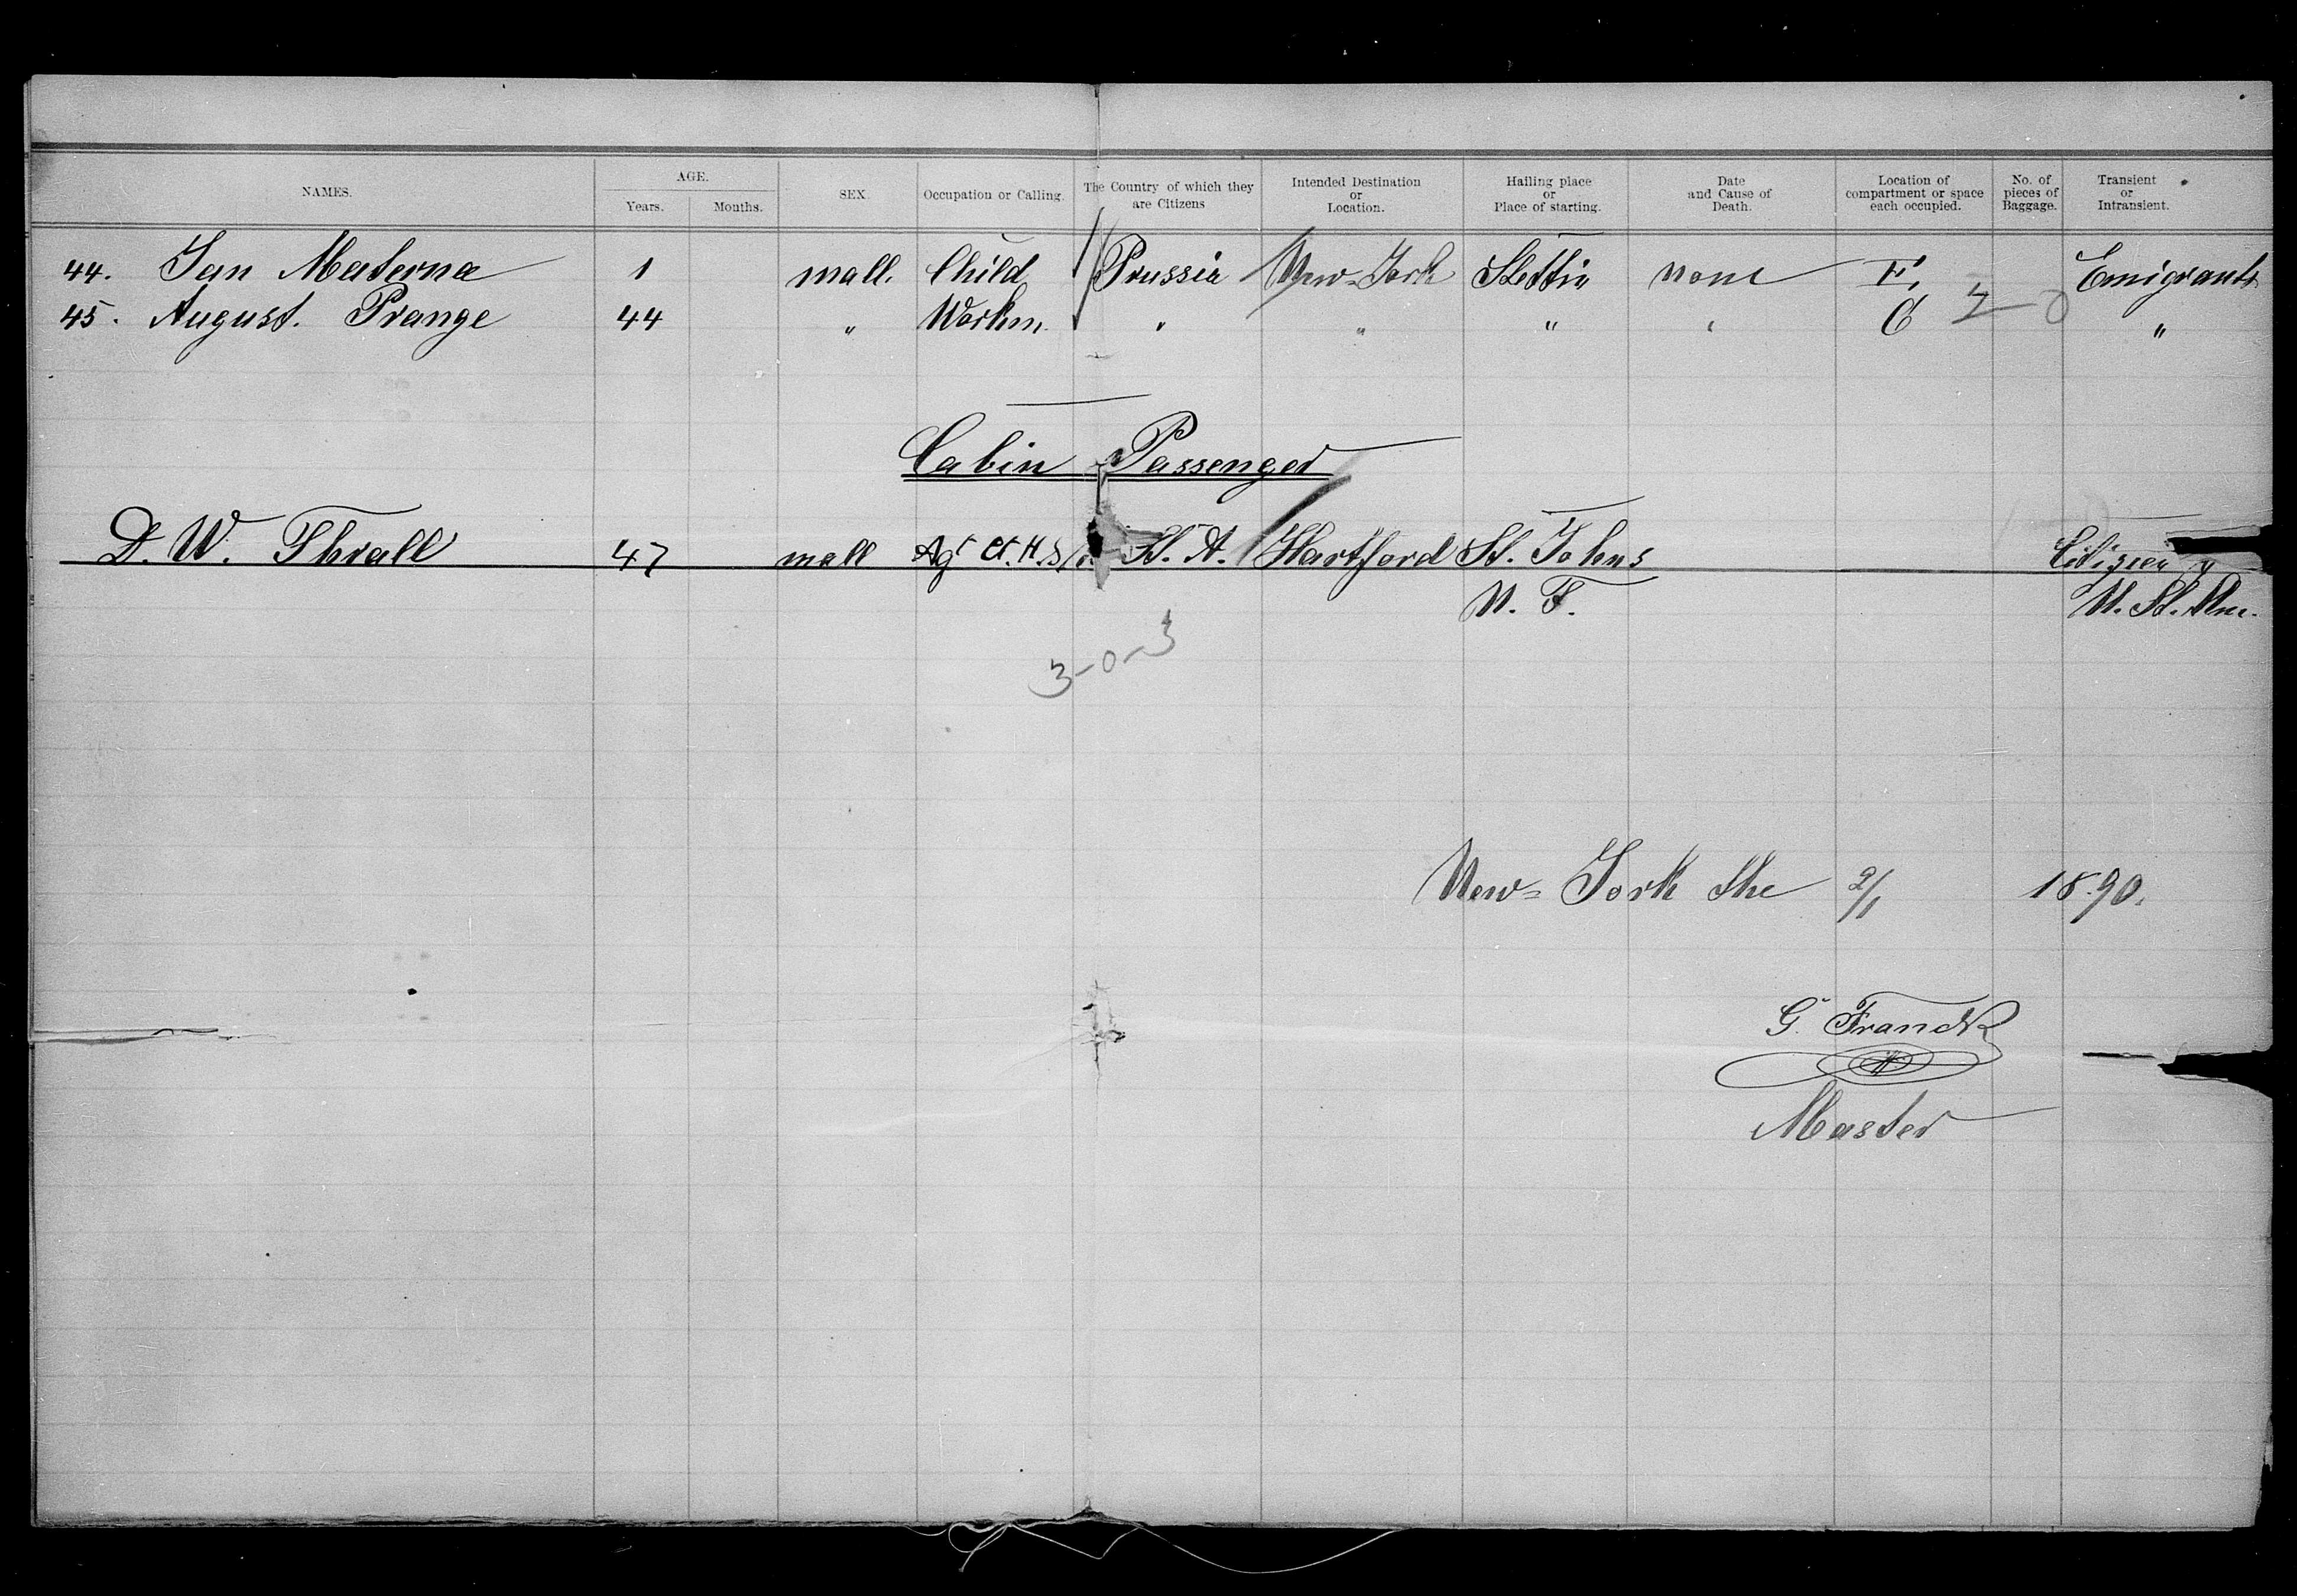 NAMES. AGE. Years. Months. SEX Occupation or Calling. The Country of which they are Citizens Intended Destination or Location. Hailing place or Place of starting. Date and Cause of Death. Location of compartment or space each occupied. No. of pieces of Baggage. Transient or Intransient.
44. Jan Materna 1 mall. Child Prussia New-York Stettin none F. Emigrants
45. August. Prange 44 " Workm. " " " " C "
2-0
Cabin Passenger
D. W. Thrall 47 mall Agt St. A. Hartford St. Johns Citizen
N. F. U. St. Am.
3-0-3
New-York the 2/1 1890.
G. Frandk
Master